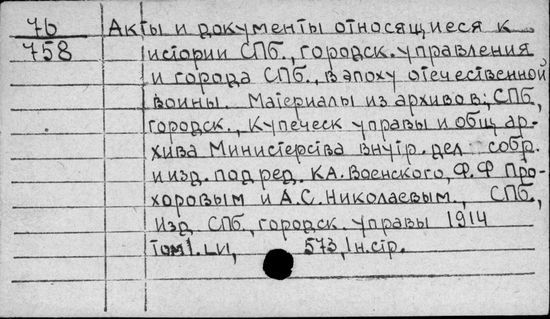 76
758
Акты и документы относящиеся к
истории СПб., городск. управления
и города СПб., в эпоху отечественной
воины. Материалы из архивов; СПб,
городск., Купеческ управы и общ ар-
хива Министерства внутр. дел собр.
и изд. под ред. К.А. Военского, Ф.Ф Про-
хоровым и А.С. Николаевым., СПб.,
изд СПб., городск. управы 1914
том 1. LVI, 573, 1н.стр.